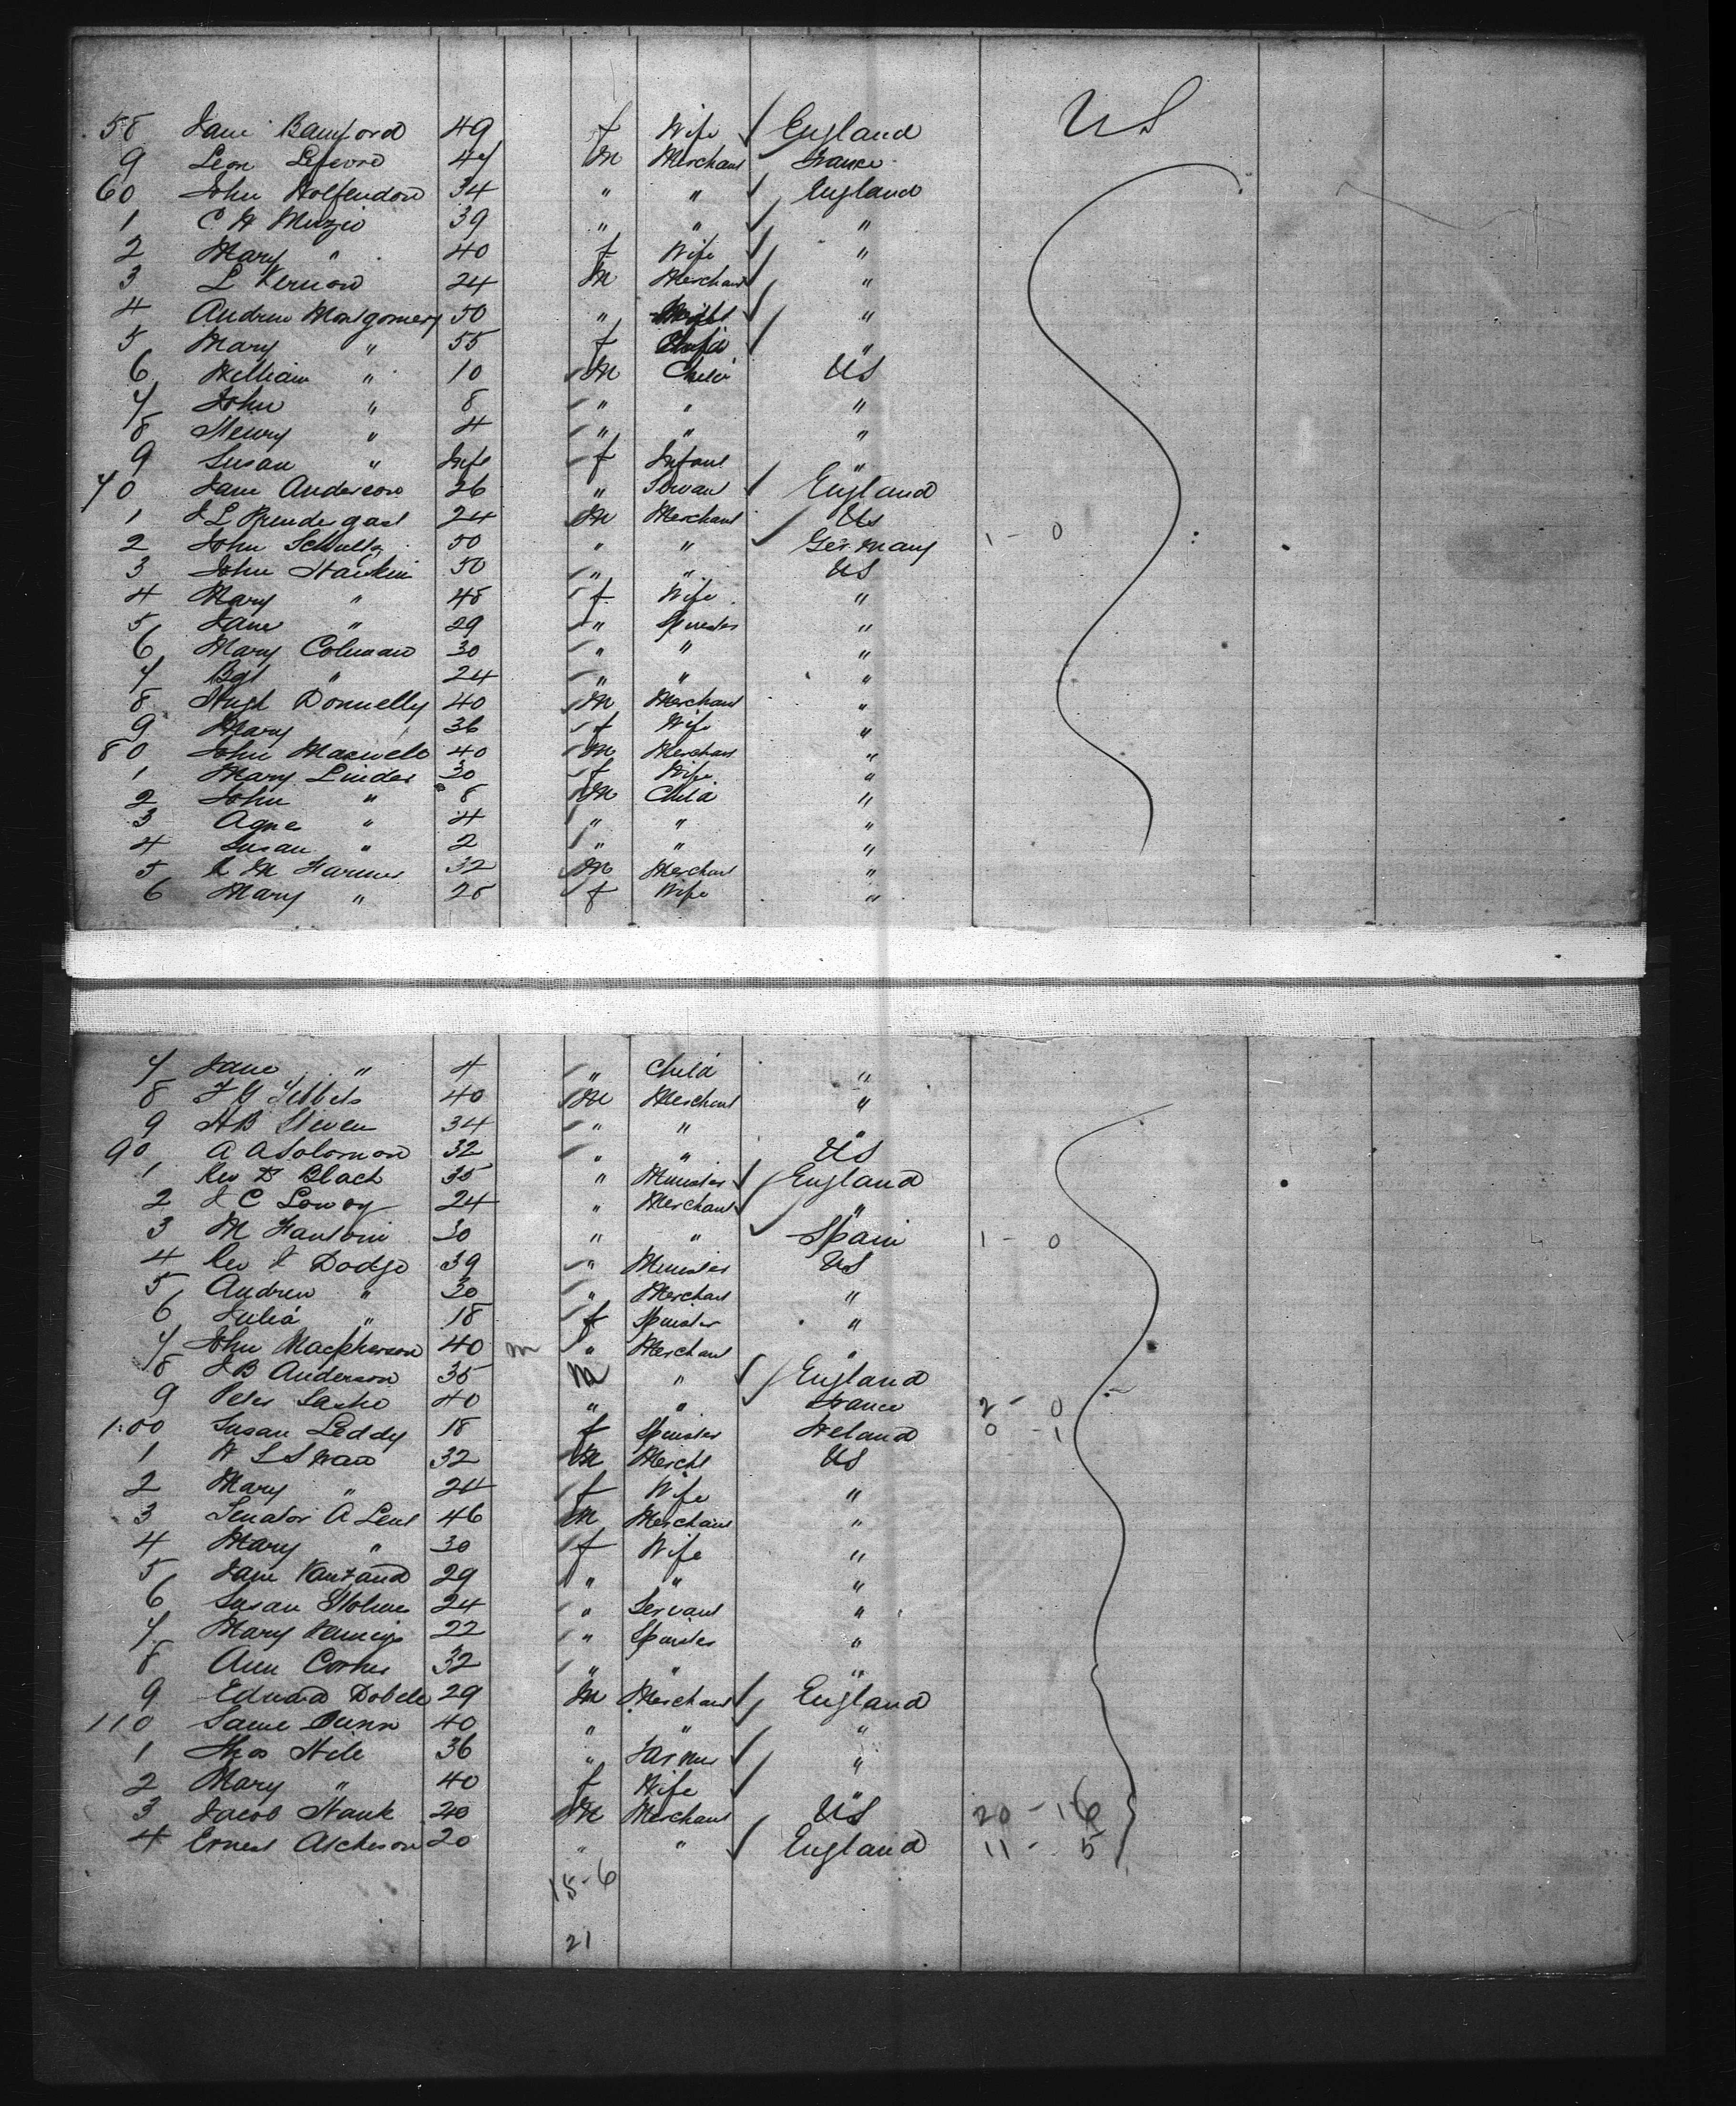 US
58 Jane Bamford 49 f Wife England
9 Leon Lefevre 47 M Merchant France
60 John Wolfendon 34 " " England
1 C H Muzio 39 " " "
2 Mary " 40 f Wife "
3 L Vernon 24 M Merchant "
4 Andrew Montgomery 50 " "
5 Mary " 55 f "
6 William " 10 M Child US
7 John " 8 " " "
8 Henry " 4 " " "
9 Susan " Inft f Infant "
70 Jane Anderson 26 " Servant England
1 J L Prendergast 24 M Merchant US
2 John Schultz 50 " " Germany 1 - 0
3 John Hawkin 50 " " US
4 Mary " 48 f Wife "
5 Jane " 29 " Spinster "
6 Mary Colman 30 " " "
7 Bgt " 24 " " "
8 Hugh Donnelly 40 M Merchant "
9 Mary " 36 f Wife "
80 John Maxwell 40 M Merchant "
1 Mary Linder 30 f Wife "
2 John " 8 M Child "
3 Agnes " 4 " " "
4 Susan " 2 " " "
5 M Farmer 32 M Merchant "
6 Mary " 28 f Wife "
7 Jane " 4 " Child "
8 F G Tebbets 40 M Merchant "
9 H B Steven 34 " " "
90 A A Solomon 32 " " US
1 Rev D Black 35 " Minister England
2 J C Lowoy 24 " Merchant "
3 M 30 " " Spain 1 - 0
4 Rev J Dodge 39 " Minister US
5 Andrew " 30 " Merchant "
6 Julia " 18 f Spinster "
7 John Macpherson 40 m " Merchant "
8 J B Anderson 35 M " England
9 Peter Laske 40 " " France 2 - 0
100 Susan Leddy 18 f Spinster Ireland 0 - 1
1 W L Swan 32 M Mercht US
2 Mary " 24 f Wife "
3 Senator A Lent 46 M Merchant "
4 Mary " 30 f Wife "
5 Jane Vanzand 29 " " "
6 Susan Holmes 24 " Servant "
7 Mary 22 " Spinster "
8 Ann 32 " " "
9 Edward Dobele 29 M Merchant England
110 Saml Dunn 40 " " "
1 Thos Hile 36 " Farmer "
2 Mary " 40 f Wife "
3 Jacob Hauk 20 M Merchant US 20 - 16
4 Ernest Atcheson 20 " " England 11 - 5
15-6
21